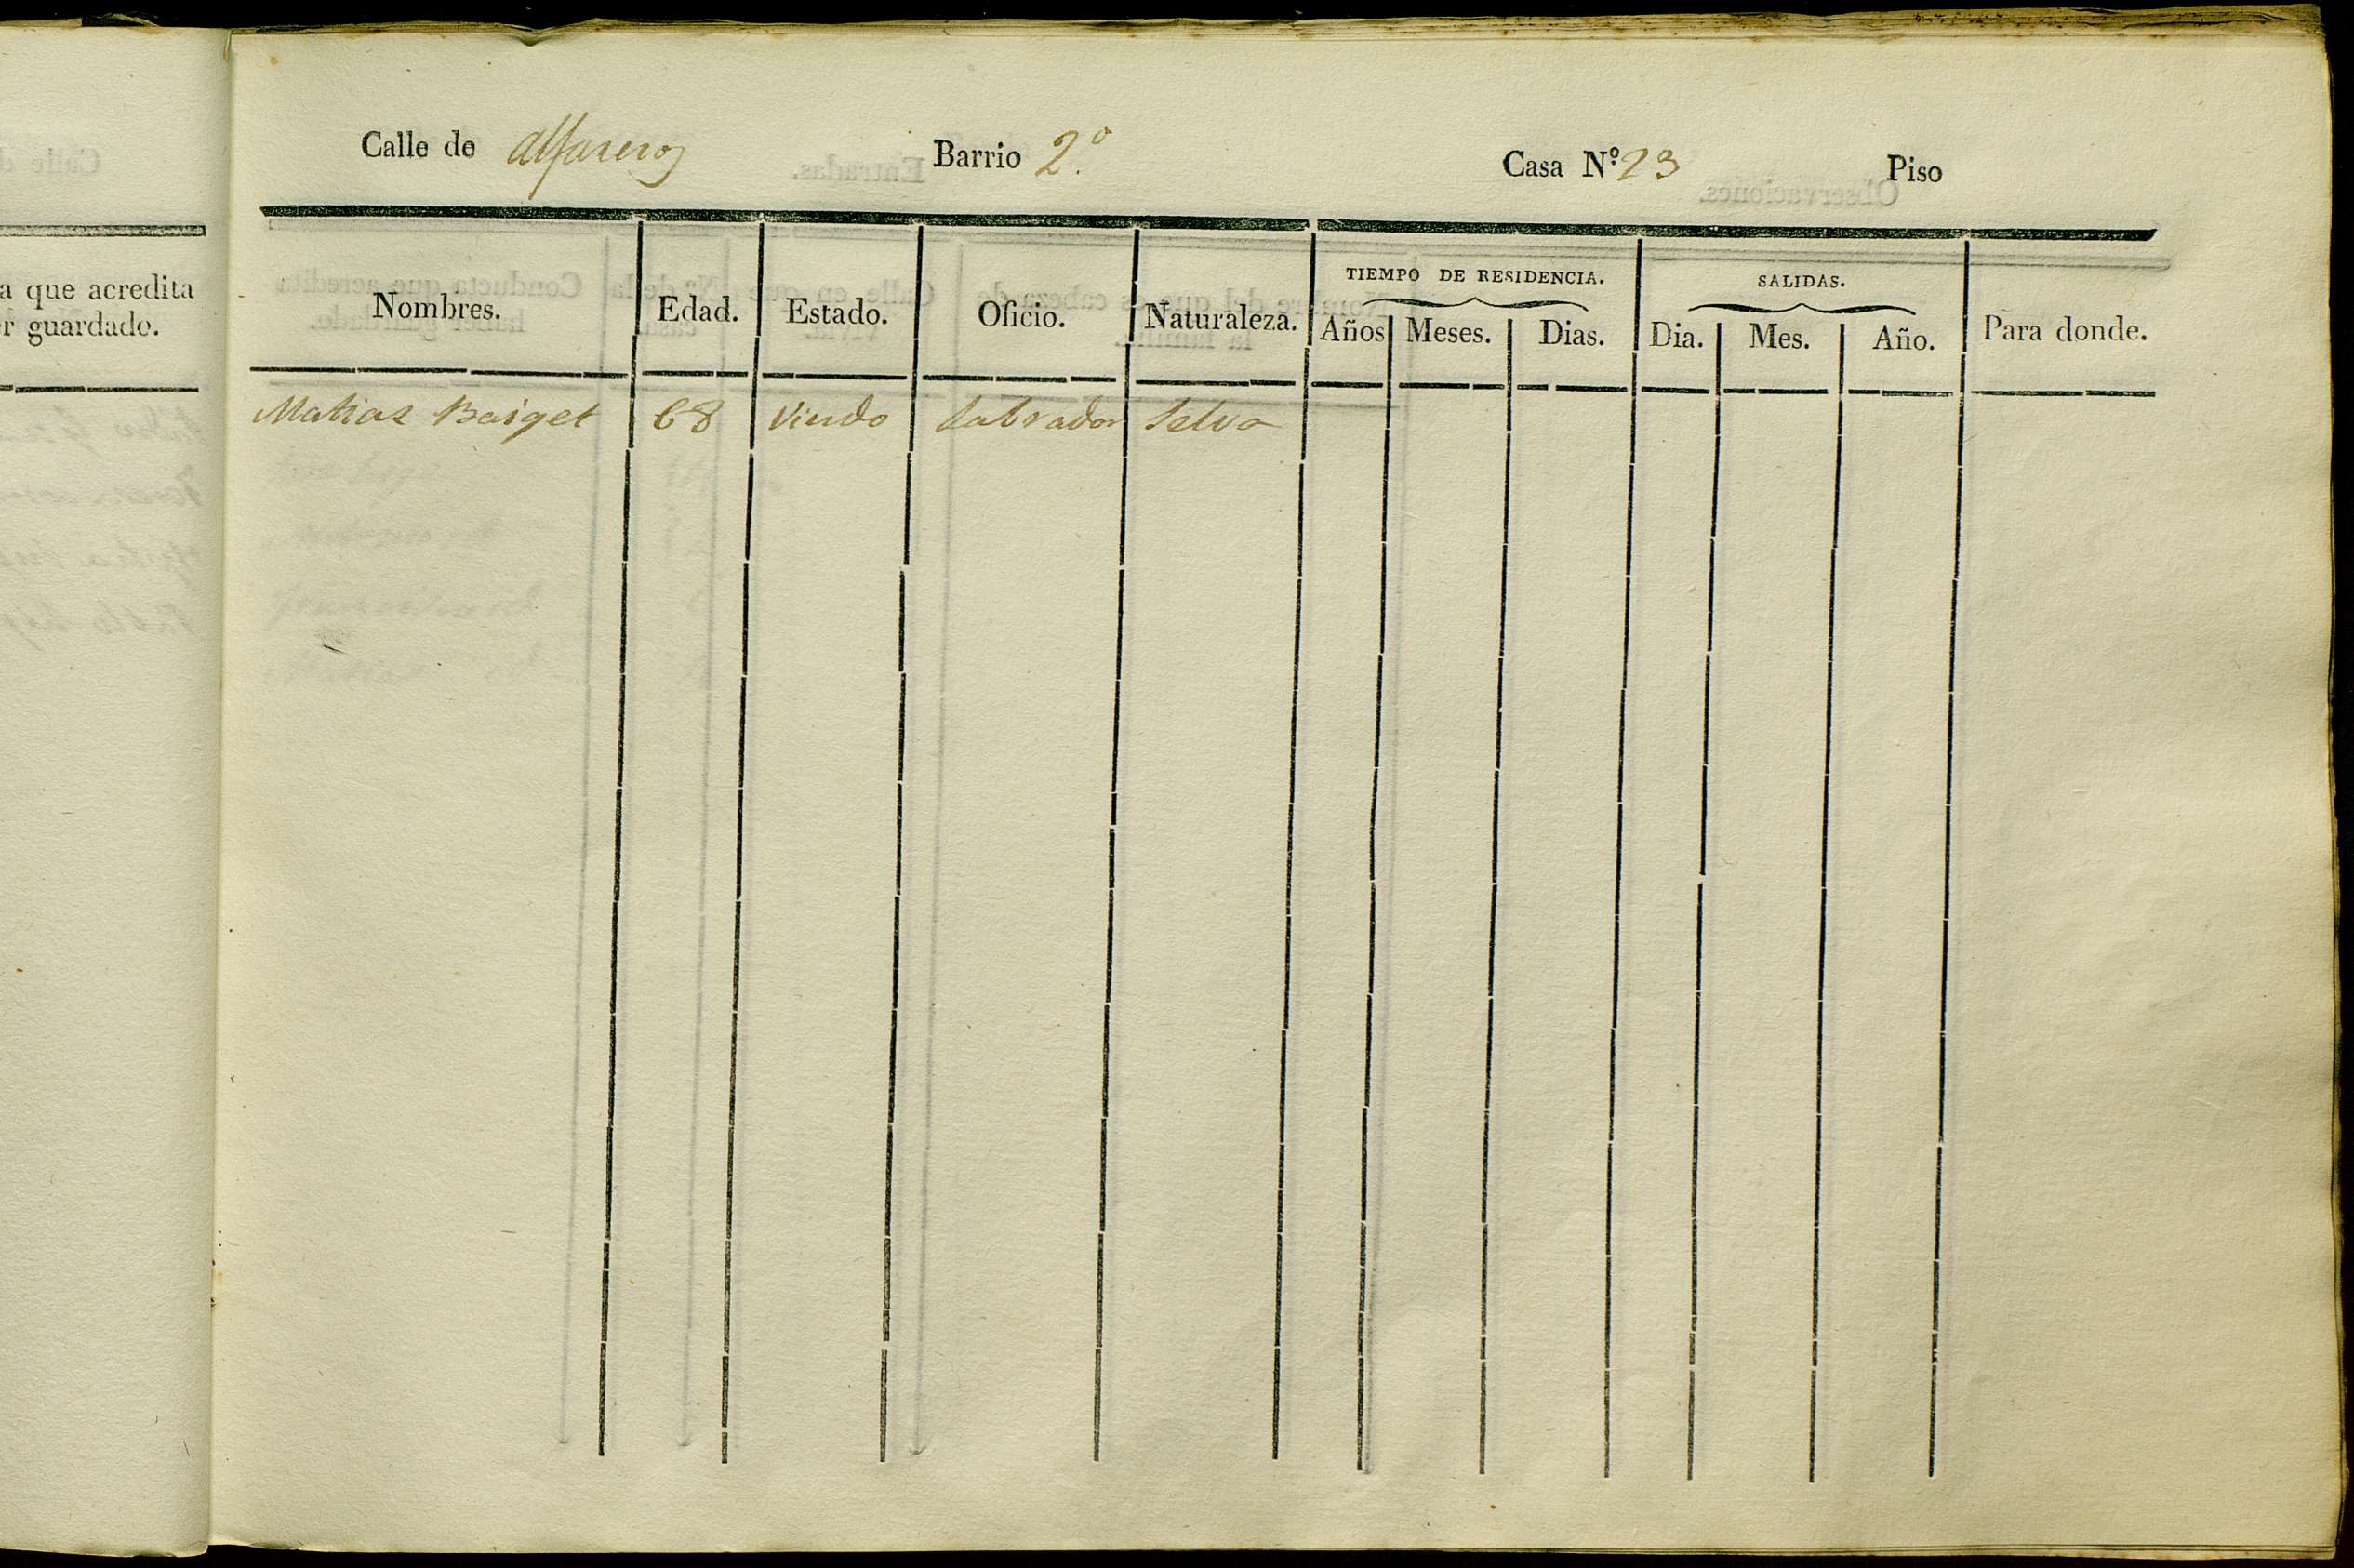 a que acredita
r guardado.
Calle de Alfareros Barrio 2.º Casa N.º 23 Piso
TIEMPO DE RESIDENCIA. SALIDAS.
Nombres. Edad. Estado. Oficio. Naturaleza. Años Meses. Dias. Dia. Mes. Año. Para donde.
Matias Baiget 68 Viudo Labrador Selva